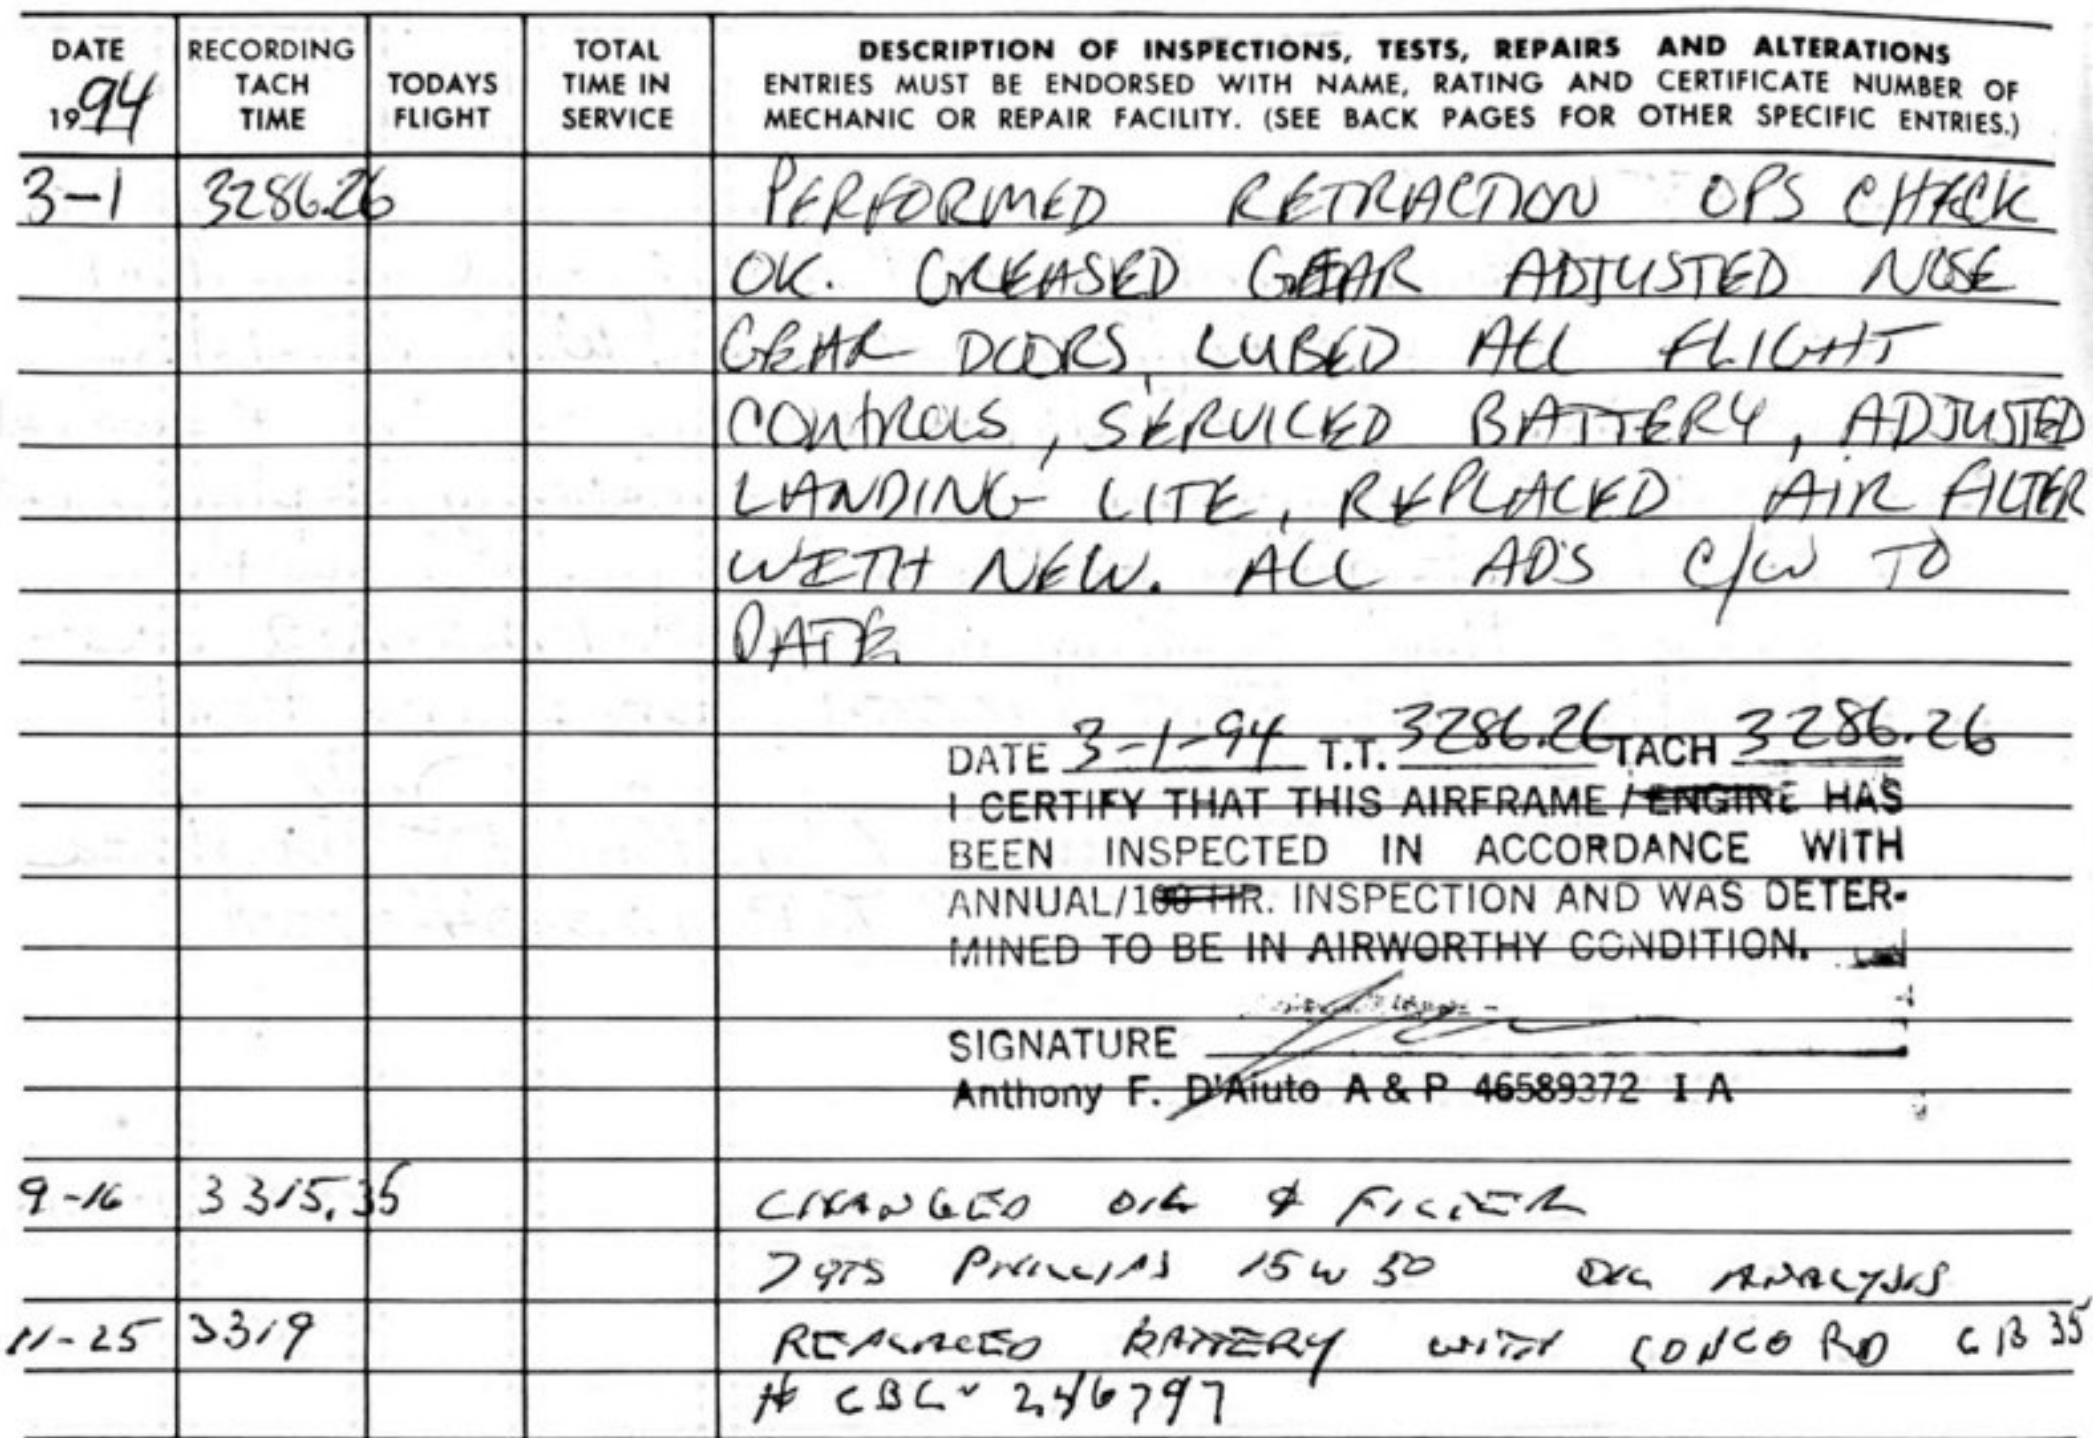 DATE RECORDING TACH TIME TODAYS FLIGHT TOTAL TIME IN SERVICE DESCRIPTION OF INSPECTIONS, TESTS, REPAIRS AND ALTERATIONS
ENTRIES MUST BE ENDORSED WITH NAME, RATING AND CERTIFICATE NUMBER OF
1994 MECHANIC OR REPAIR FACILITY. (SEE BACK PAGES FOR OTHER SPECIFIC ENTRIES.)
3-1 3286.26 PERFORMED RETRACTION OPS CHECK
OK. GREASED GEAR ADJUSTED NOSE
GEAR DOORS, LUBED ALL FLIGHT
CONTROLS, SERVICED BATTERY, ADJUSTED
LANDING LITE, REPLACED AIR FILTER
WITH NEW. ALL ADS C/W TO
DATE
DATE 3-1-94 T.T. 3286.26 TACH 3286.26
I CERTIFY THAT THIS AIRFRAME / ENGINE HAS
BEEN INSPECTED IN ACCORDANCE WITH
ANNUAL/100 HR. INSPECTION AND WAS DETER-
MINED TO BE IN AIRWORTHY CONDITION.
SIGNATURE
Anthony F. D'Aiuto A & P 46589372 I A
9-16 3315.35 CHANGED OIL & FILTER
7 QTS PHILLIPS 15W50 OIL ANALYSIS
11-25 3319 REPLACED BATTERY WITH CONCORD CB 35